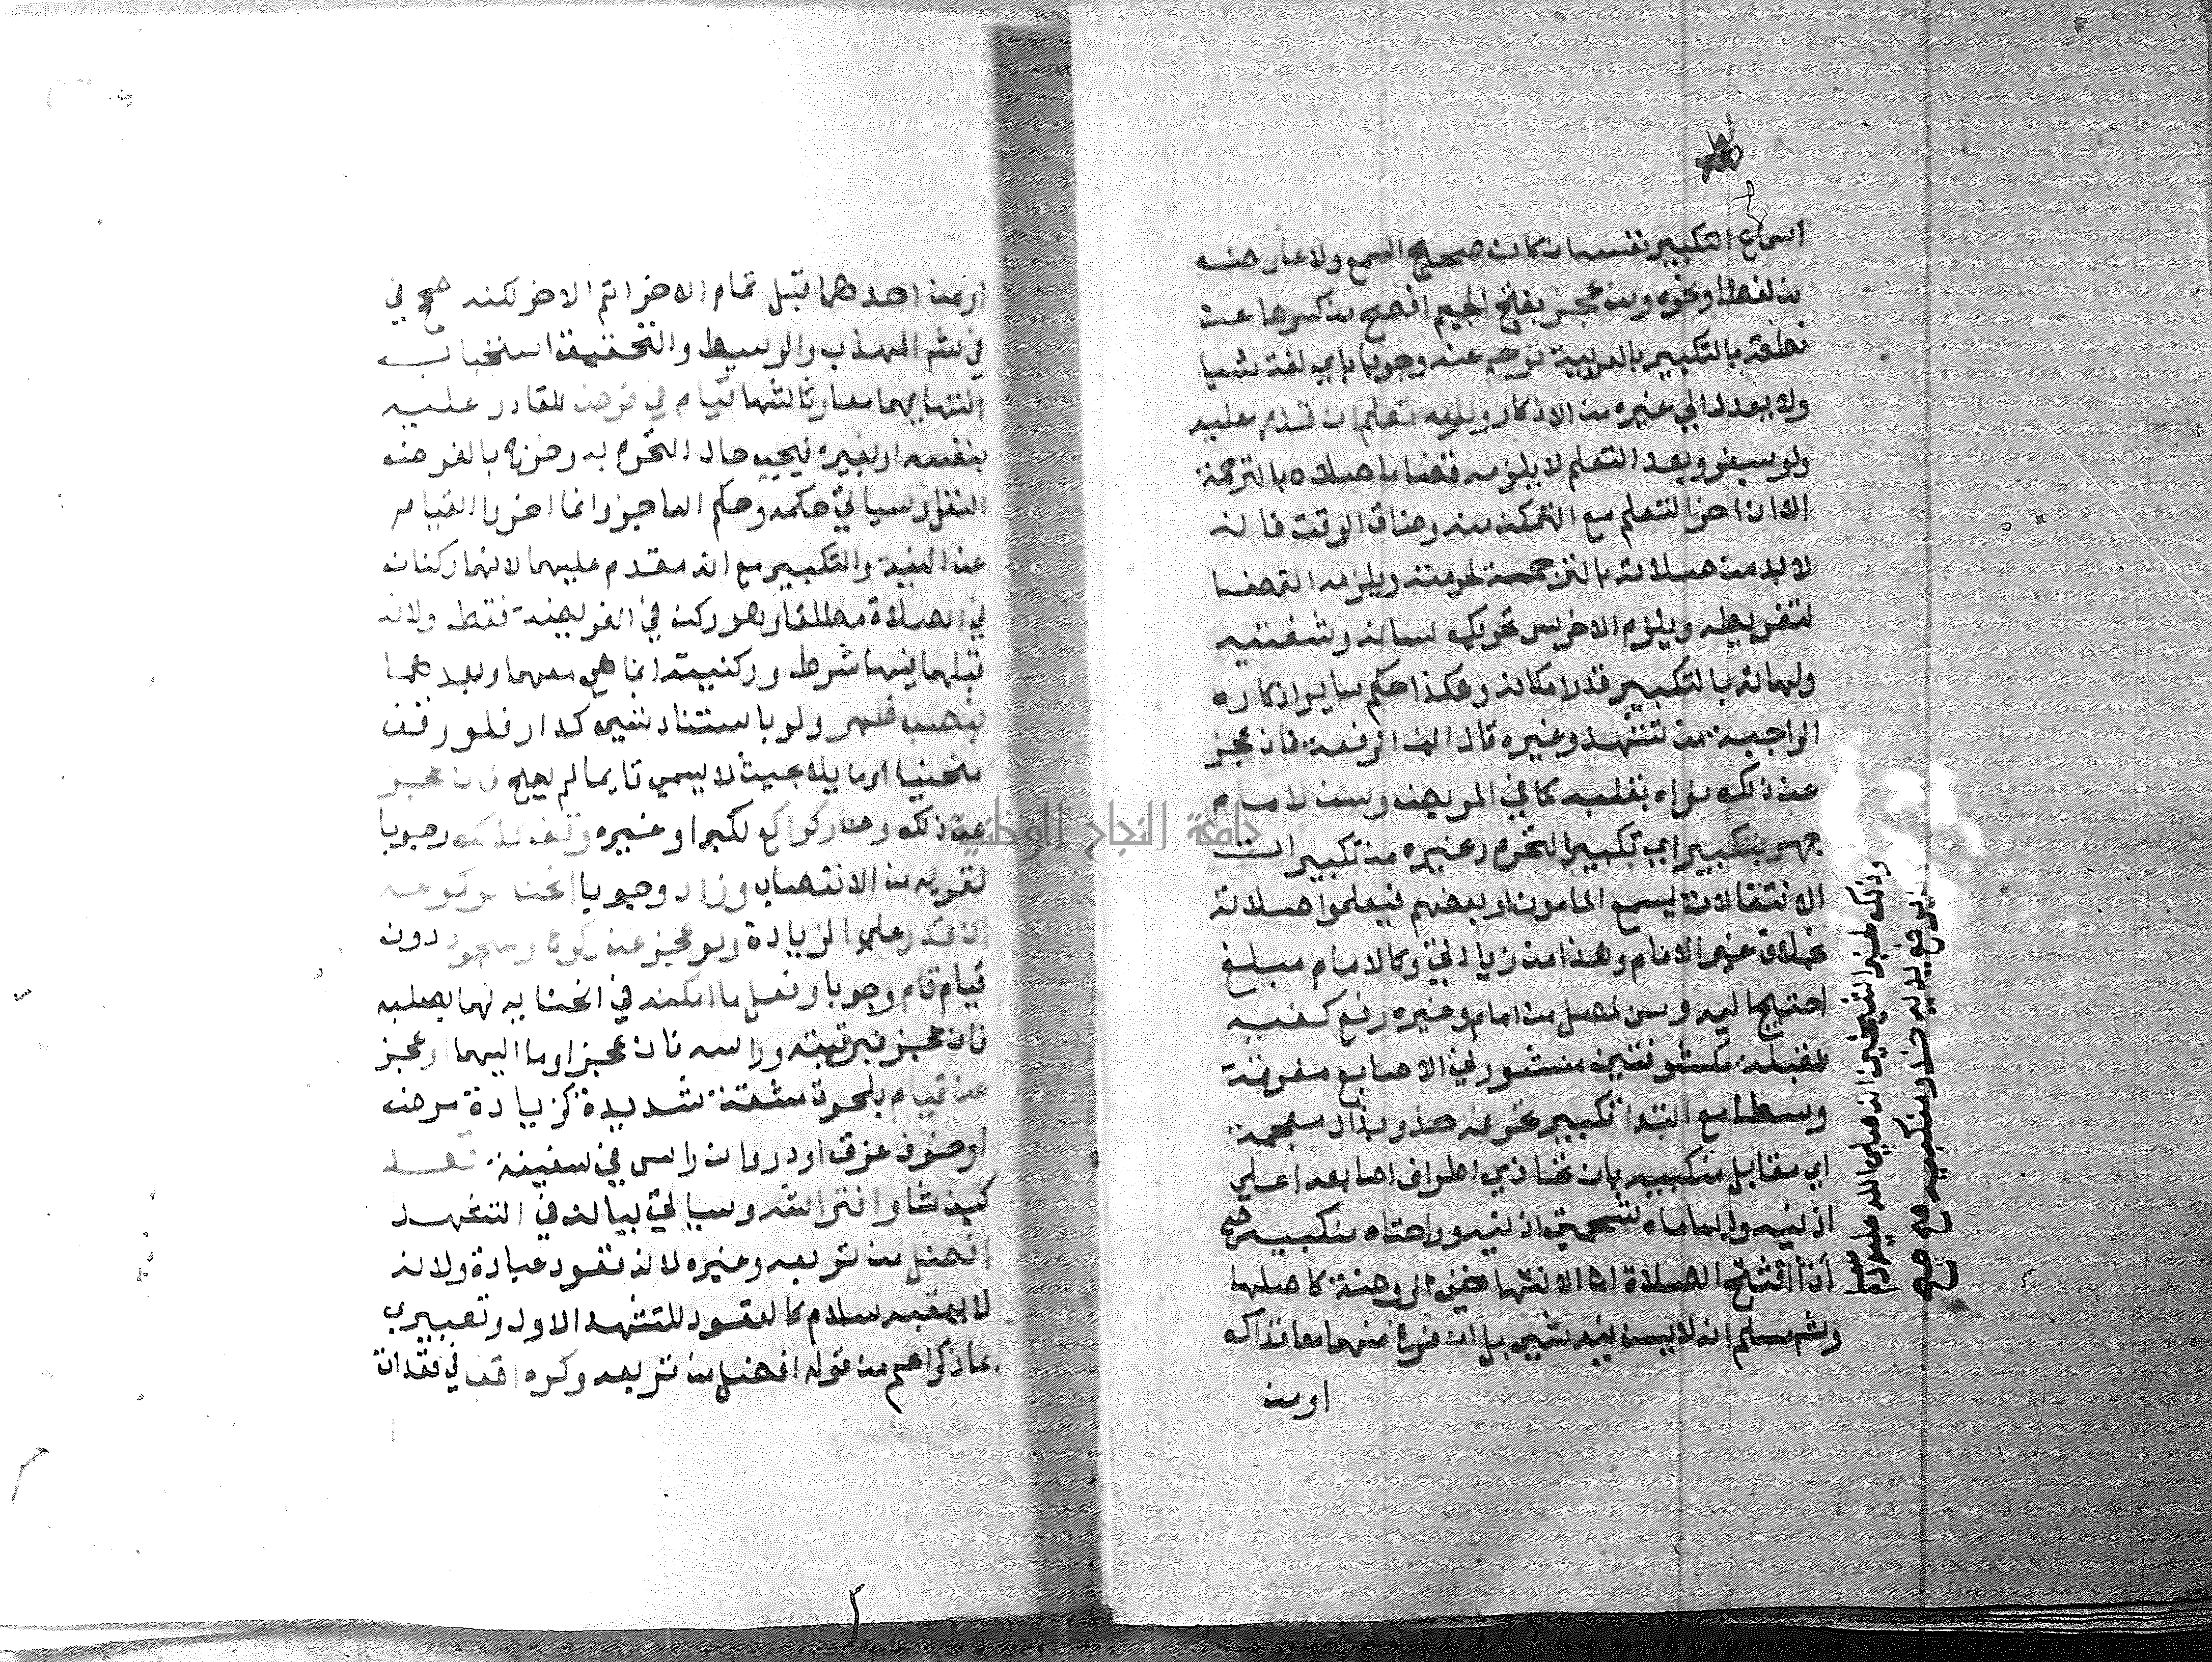 اسماع التكبير نفسه ان كان صحيح السمع ولا عارض
من لغط او نحوه ومن عجز بفتح الجيم افصح من كسرها عن
نطقه بالتكبير بالعربية ترجم عنه وجوبا باي لغة شيا
ولا يعدل الي غيره من الاذكار ولزمه تعلم ان قدر عليه
ولو بسفر وبعد التعلم لا يلزمه قضا ما صلاه بالترجمة
الا ان اخر التعلم مع التمكن منه وضاق الوقت فانه
لا بد من صلاته بالترجمة لحرمته ويلزمه القضا
لتفريطه ويلزم الاخرس تحريك لسانه وشفتيه
ولهاته بالتكبير قدر امكانه وهكذا حكم ساير اذكاره
الواجبة من تشهد وغيره قال ابن الرفعة فان عجز
عن ذلك نواه بقلبه كما في المريض وسن لامام
جهر بتكبير اي تكبير التحرم وغيره من تكبيرات
الانتقالات ليسمع المامون او بعضهم فيعلموا صلاته
بخلاف غير الامام وهذا من زيادتي وكالامام مبلغ
احتيج اليه وسن لمصل من امام وغيره رفع كفيه
للقبلة مكشوفتين منشورتي الاصابع مفرقة
وسطا مع ابتدا تكبير تحرمه حذو بذال معجمة
اي مقابل منكبيه بان تحاذي اطراف اصابعه اعلي
اذنيه وابهاماه شحمتي اذنيه وراحتاه منكبيه
اذا افتتح الصلاة اما الانتها ففي الروضة كاصلها
وشرح مسلم انه لا يسن فيه شي بل ان فرغ منهما معا فذاك
او من
وذلك لخبر الشيخين انه صلي الله عليه وسلم
كان يرفع يديه حذو منكبيه صح صح
او من احدهما قبل تمام الاخر اتم الاخر لكنه صحح في
في شرح المهذب والوسيط والتحقيق استحباب
انتهايهما معا وثالثها قيام في فرض للقادر عليه
بنفسه او بغيره فيجب حال التحرم به وخرج بالفرض
النفل وسياتي حكمه وحكم العاجز وانما اخروا القيام
عن النية والتكبير مع انه مقدم عليهما لانهما ركنان
في الصلاة مطلقا وهو ركن في الفريضة فقط ولانه
قبلهما فيها شرط وركنيته انما هي معهما وبعدهما
بنصب ظهر ولو باستناد لشي كجدار فلو وقف
منحنيا او مايلا بحيث لا يسمي قايما لم يصح فان عجز
عن ذلك وصار كراكع لكبر او غيره وقف كذلك وجوبا
لقربه من الانتصاب وزاد وجوبا انحنا لركوعه
ان قدر علي الزيادة ولو عجز عن ركوع وسجود دون
قيام قام وجوبا وفعل ما امكنه في انحنايه لهما بصلبه
فان عجز فبرقبته وراسه فان عجز اوما اليهما او عجز
عن قيام بلحوق مشقة شديدة كزيادة مرض
او خوف غرق او دوران راس في سفينة قعد
كيف شا وافتراشه وسياتي بيانه في التشهد
افضل من تربعه وغيره لانه قعود عبادة ولانه
لا يعقبه سلام كالقعود للتشهد الاول وتعبيري
بما ذكر اعم من قوله افضل من تربعه وكره اقعا في قعدات
جامعة النجاح الوطنية